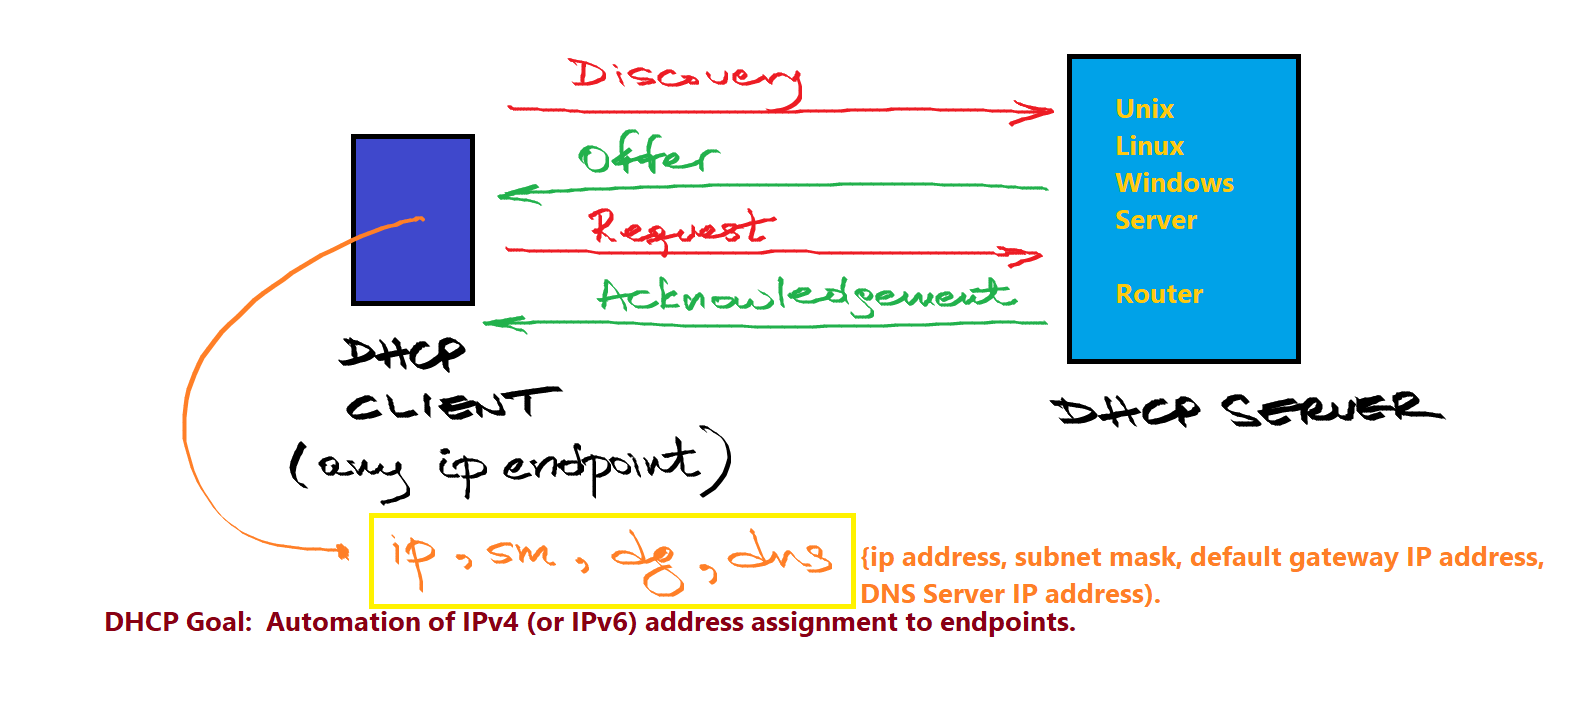 Discovery
Offer
Request
Acknowledgement
Unix
Linux
Windows
Server
Router
DHCP
CLIENT
(any ip endpoint)
DHCP SERVER
ip, sm, dg, dns
{ip address, subnet mask, default gateway IP address,
DNS Server IP address).
DHCP Goal:  Automation of IPv4 (or IPv6) address assignment to endpoints.